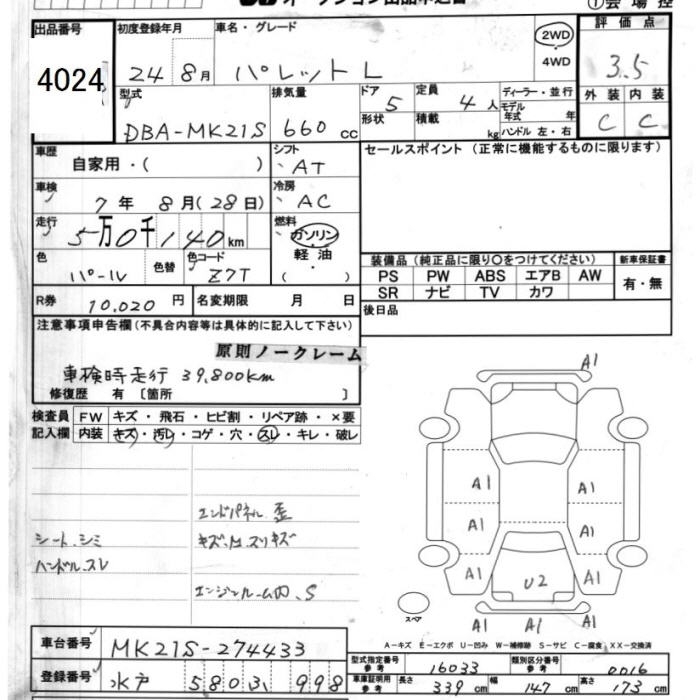 オークション出品車申込書
①会場控
出品番号 4024
初度登録年月 24 8月
車名・グレード パレット L
2WD
・
4WD
評価点 3.5
型式 DBA-MK21S
排気量 660 cc
ドア 5
形状
定員 4人
積載 kg
ディーラー・並行
モデル年式 年
ハンドル 左・右
外装 内装
C C
車歴 自家用・( )
シフト AT
車検 7年 8月(28日)
冷房 AC
走行 5万0千140km
燃料 ガソリン
・
軽油
・
( )
色 パール
色替
色コード Z7T
R券 10,020円
名変期限 月 日
セールスポイント (正常に機能するものに限ります)
装備品(純正品に限り〇をつけてください)
新車保証書
PS PW ABS エアB AW
SR ナビ TV カワ
有・無
後日品
注意事項申告欄(不具合内容等は具体的に記入して下さい)
原則ノークレーム
車検時走行 39,800km
修復歴 有 [箇所 ]
検査員 FW キズ・飛石・ヒビ割・リペア跡・×要
記入欄 内装 キズ・汚レ・コゲ・穴・スレ・キレ・破レ
エンドパネル歪
シート、シミ
キズ、M、スリキズ
ハンドル、スレ
エンジンルーム内、S
A1
A1 A1
A1 A1
A1 U2 A1
A1 A1 A1
スペア
A-キズ E-エクボ U-凹み W-補修跡 S-サビ C-腐食 XX-交換済
車台番号 MK21S-274433
登録番号 水戸 580 え 998
型式指定番号 参考 16033
類別区分番号 参考 0016
車庫証明用 参考 長さ 339cm 幅 147cm 高さ 173cm